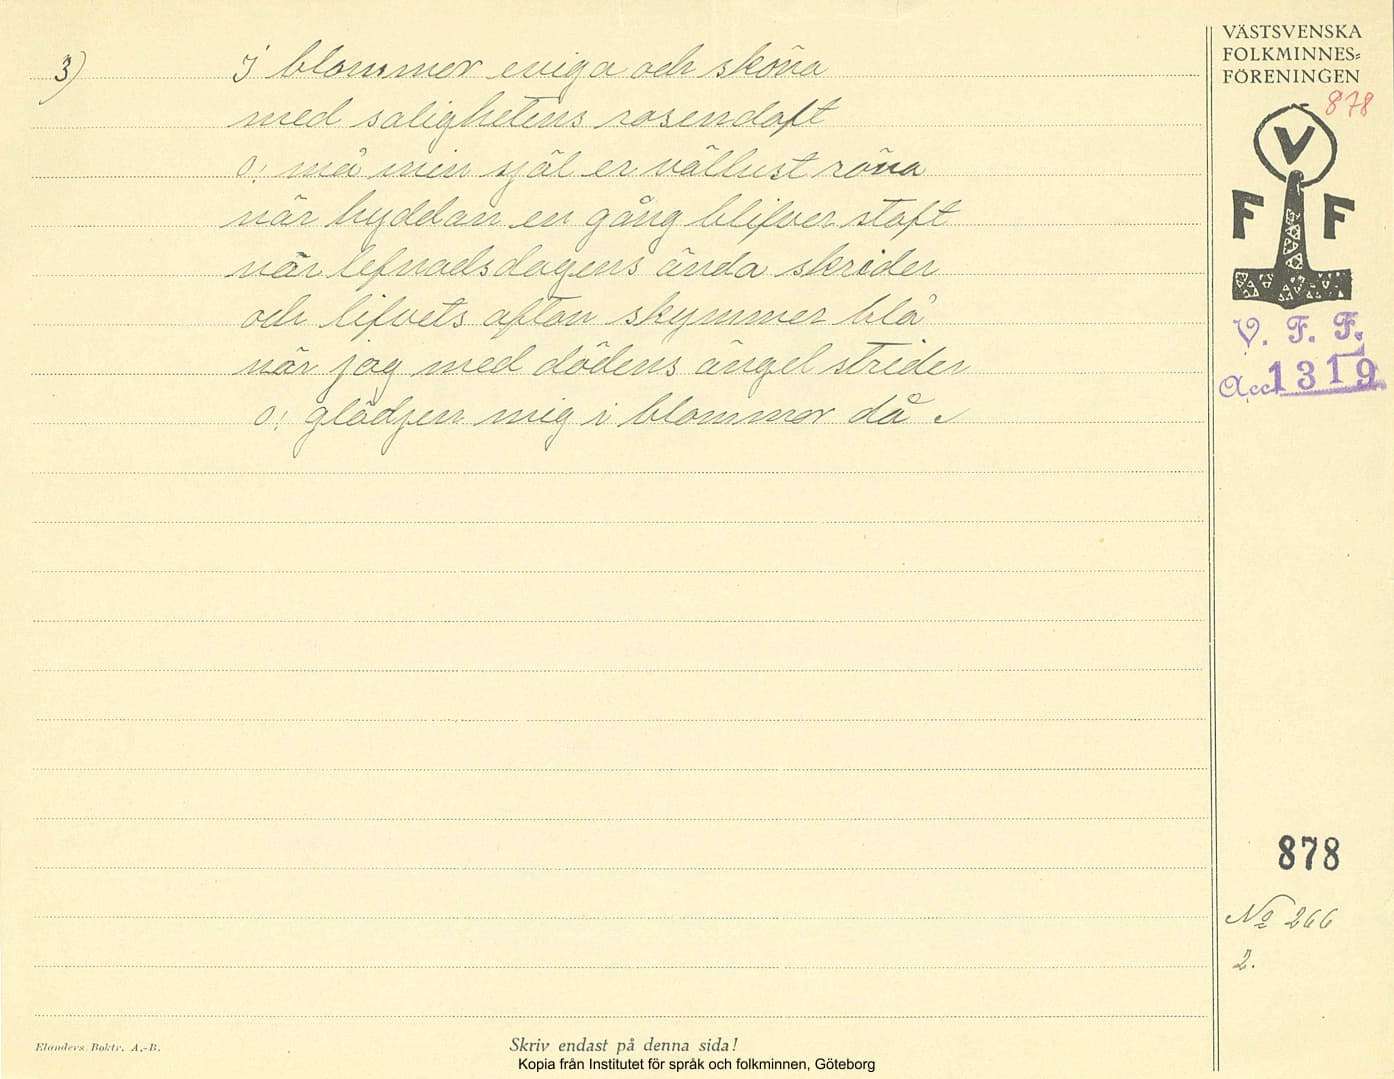 3) I blommor eviga och sköna
med salighetens rosendoft
o! må min själ er vällust röna
när hyddan en gång blifver stoft
när lefnadsdagens ända skrider
och lifvets afton skymmer blå
när jag med dödens ängel strider
o! glädjen mig i blommor då
VÄSTSVENSKA
FOLKMINNES=
FÖRENINGEN
878
V
F F
V. F. F.
Acc 1319
878
No 266
2.
Elanders Boktr. A.-B.
Skriv endast på denna sida!
Kopia från Institutet för språk och folkminnen, Göteborg